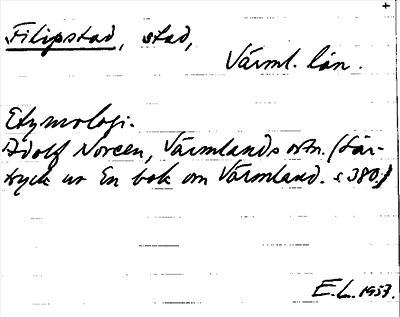 Filipstad, stad,
Värml. län.
Etymologi.
Adolf Noreen, Värmlands ortn. (Sär-
tryck ur En bok om Värmland. s 380.)
E.L. 1953.